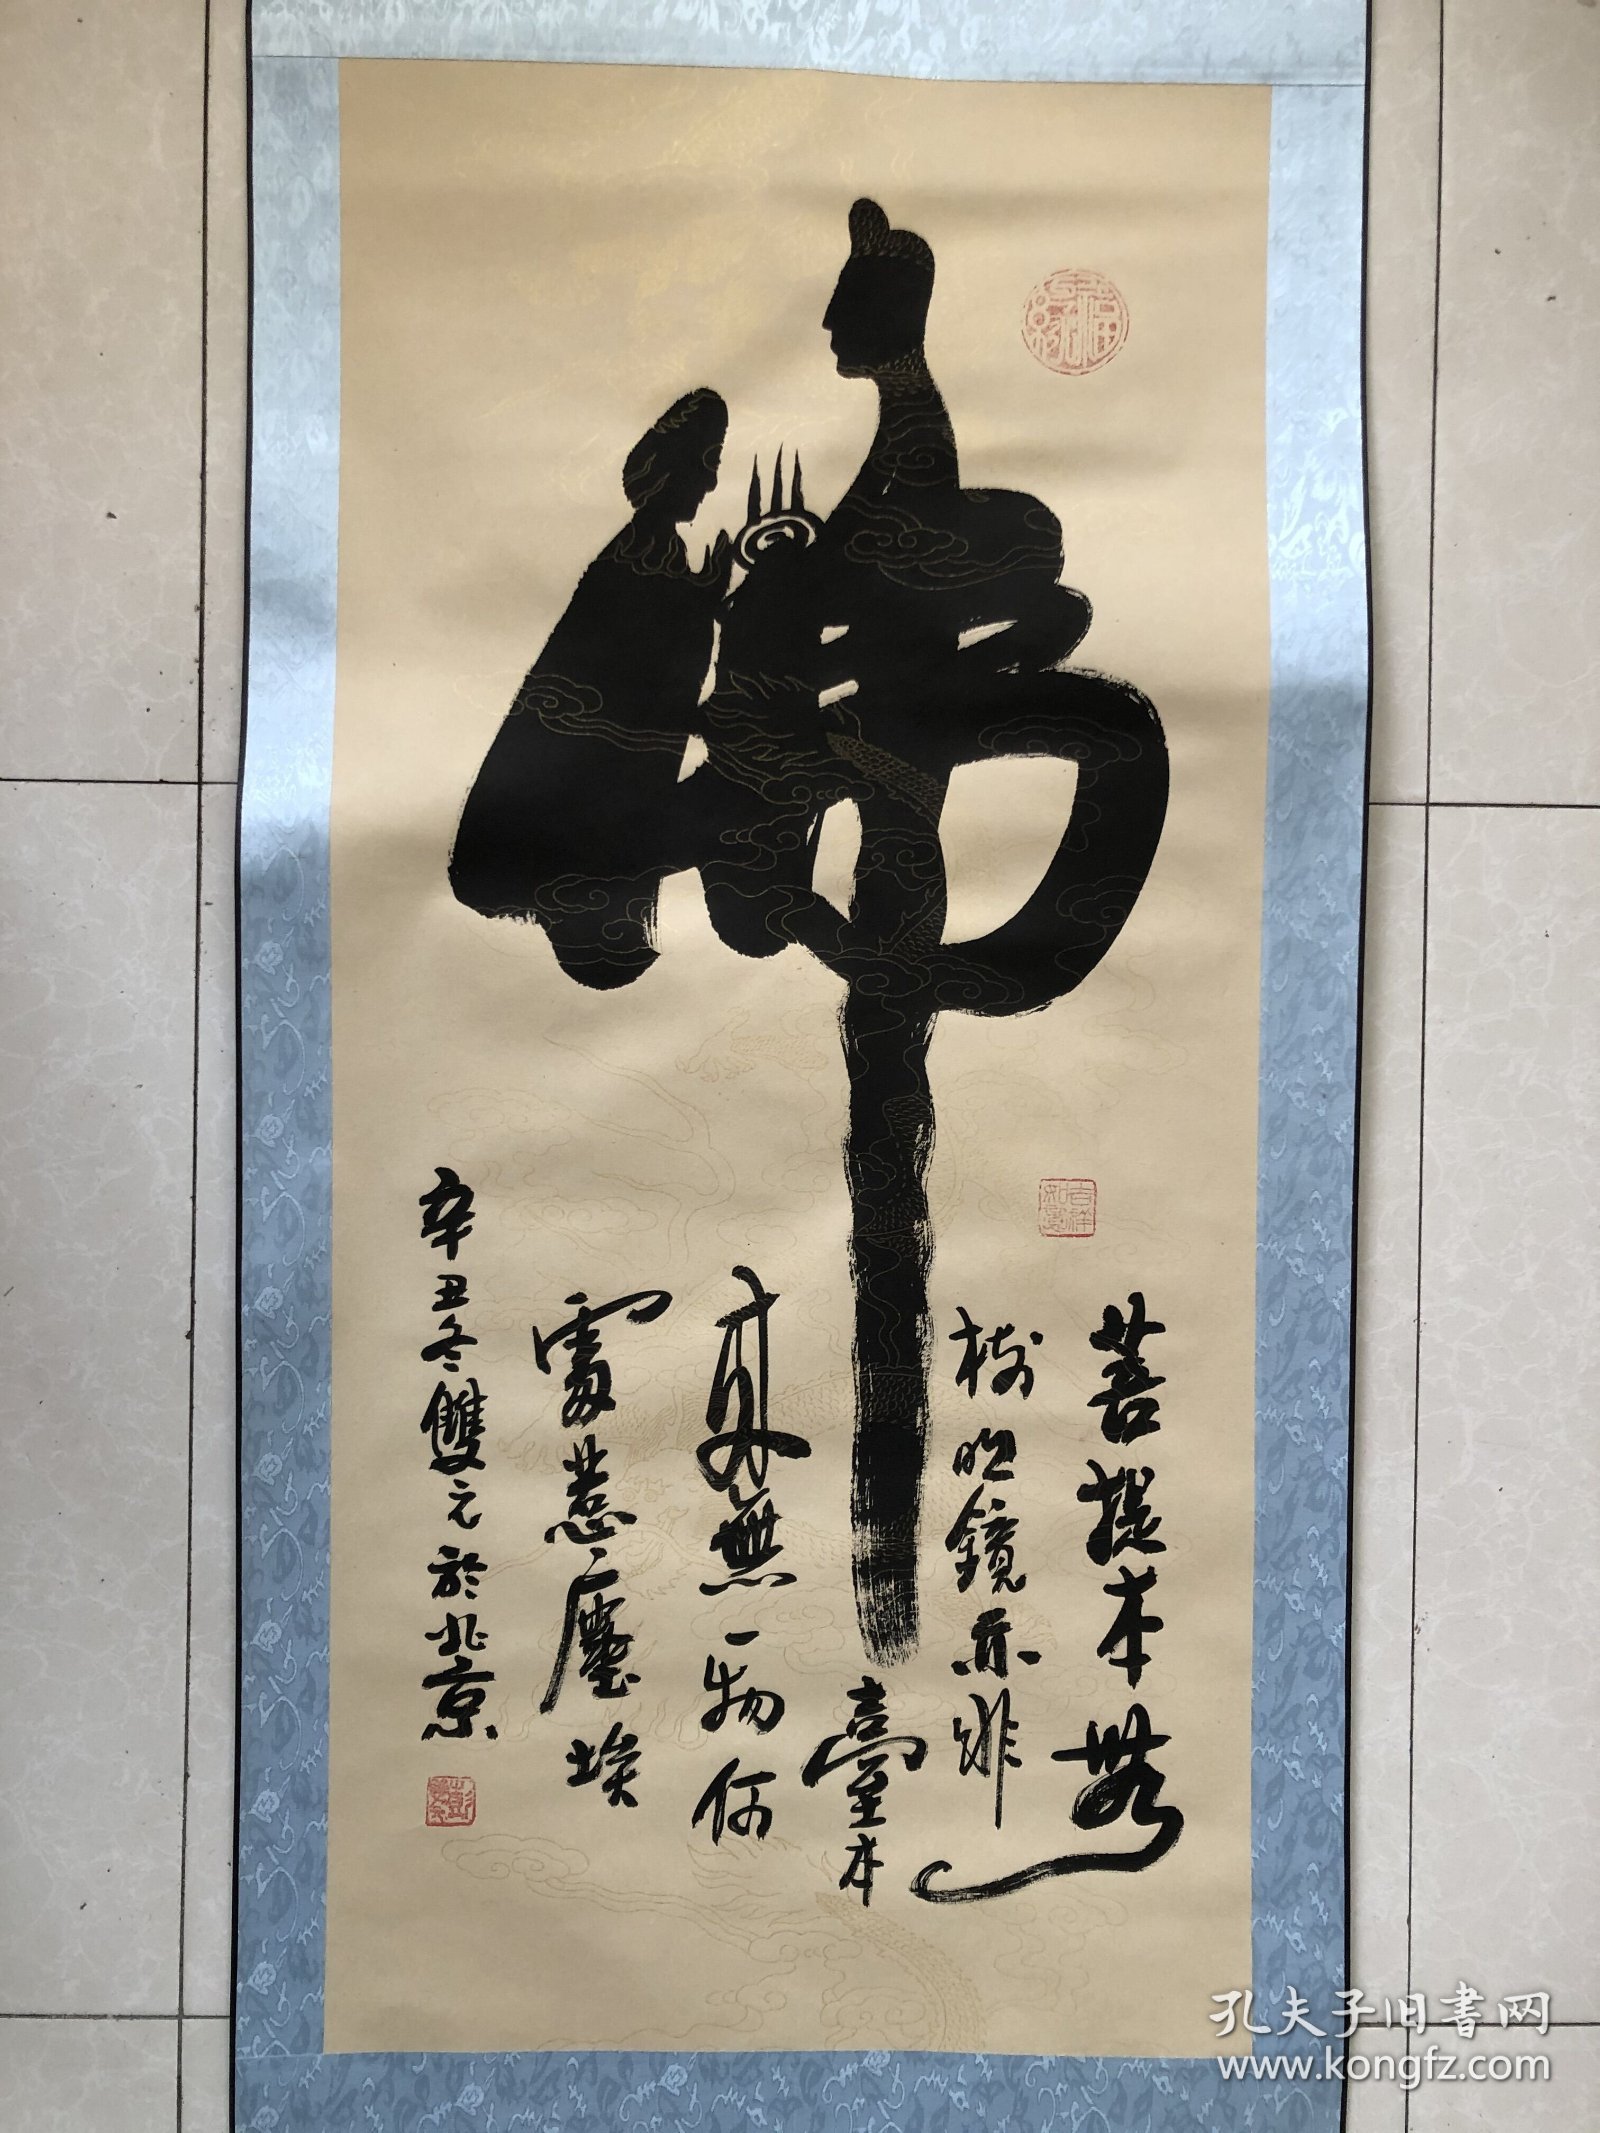 佛
菩提本無
樹明鏡亦非
臺本
來無一物何
處惹塵埃
辛丑冬雙元於北京
吉祥如意
孔夫子旧书网
www.kongfz.com